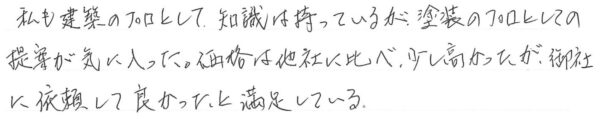 私も建築のプロとして、知識は持っているが、塗装のプロとしての
提案が気に入った。価格は他社に比べ、少し高かったが、御社
に依頼して良かった、と満足している。